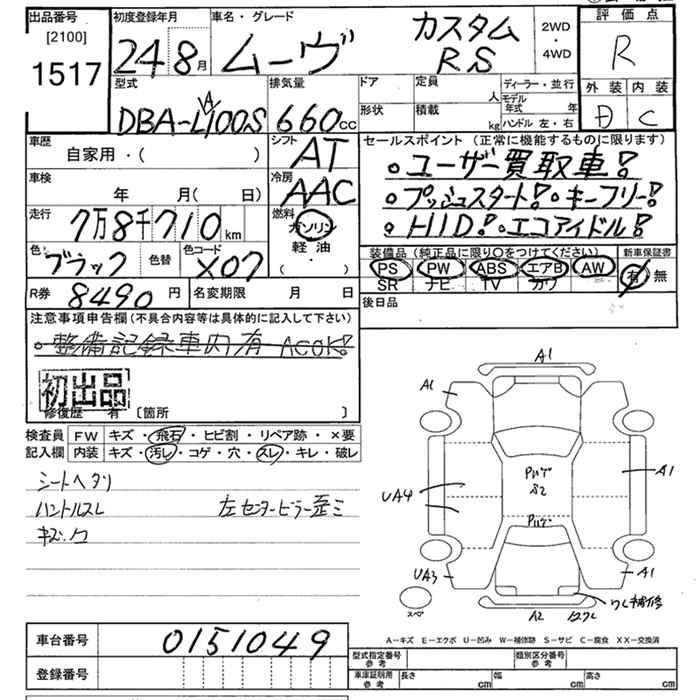 出品番号
[2100]
1517
初度登録年月
24 8月
車名・グレード
ムーヴ カスタム RS
2WD
・
4WD
評価点
R
外装 内装
D C
型式
DBA-LA100S
排気量
660cc
ドア
形状
定員
人
積載
kg
ディーラー・並行
モデル年式 年
ハンドル 左・右
車歴
自家用・( )
シフト
AT
車検
年 月( 日)
冷房
AAC
走行
7万8千710km
燃料
ガソリン
軽油
( ・ )
色
ブラック
色替
色コード
X07
R券
8490円
名変期限 月 日
セールスポイント(正常に機能するものに限ります)
。ユーザー買取車!
。プッシュスタート!。キーフリー!
。HID!。エコアイドル!
装備品(純正品に限り〇をつけてください)
PS PW ABS エアB AW
SR ナビ TV カワ
新車保証書
有 無
後日品
注意事項申告欄(不具合内容等は具体的に記入して下さい)
。整備記録車内有 ACOK!
初出品
修復歴 有 [箇所 ]
検査員記入欄
FW キズ・飛石・ヒビ割・リペア跡・×要
内装 キズ・汚レ・コゲ・穴・スレ・キレ・破レ
シートヘタリ
ハンドルスレ 左センターピラー歪ミ
キズ・
A1
A1
A1
UA4
S2
UA3
A1
A2
ワレ補修
スペア
A-キズ E-エクボ U-凹み W-補修跡 S-サビ C-腐食 XX-交換済
車台番号
0151049
登録番号
型式指定番号
参考
類別区分番号
参考
車庫証明用
参考
長さ cm
幅 cm
高さ cm